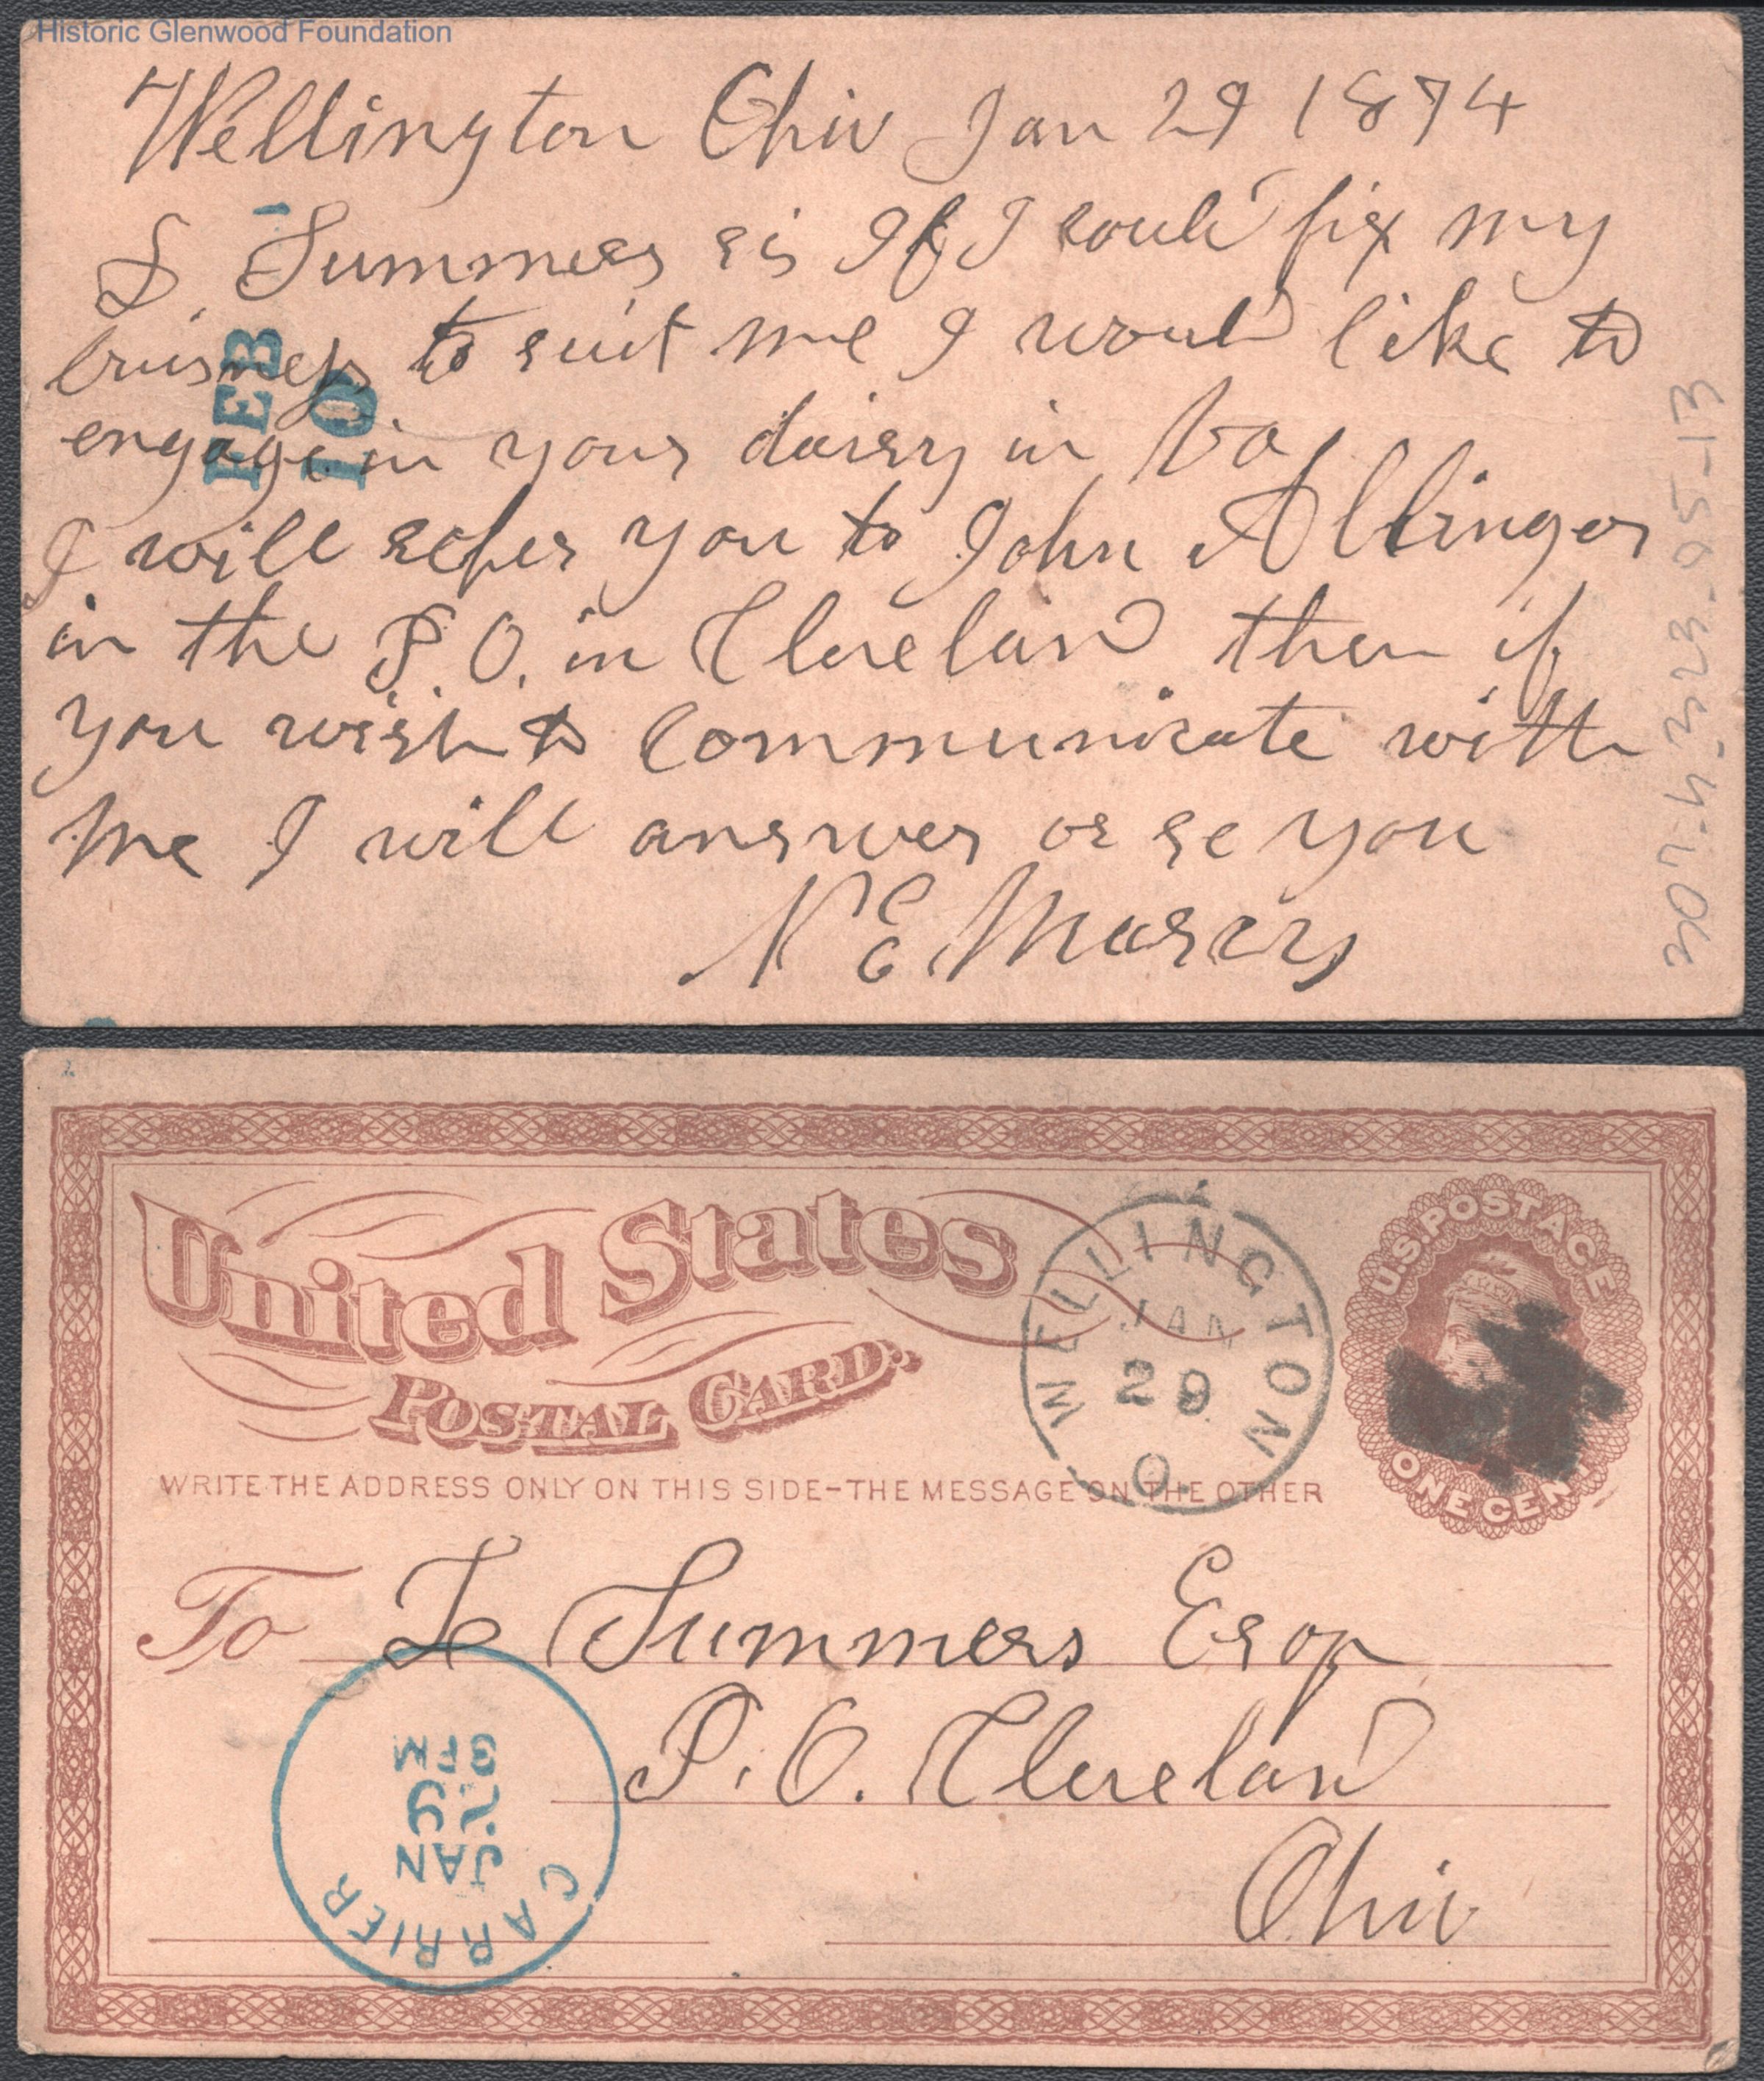 Historic Glenwood Foundation
Wellington Ohio Jan 29 1874
S. Summers sir If I could fix my
buisness to suit me I would like to
engage in your dairy in Va
I will refer you to John Allinger
in the P.O. in Cleveland then if
you wish to communicate with
me I will answer or se you
N E
FEB
10
307-4-323-95-13
United States
Postal Card.
WRITE THE ADDRESS ONLY ON THIS SIDE-THE MESSAGE ON THE OTHER
WELLINGTON
JAN
29
O
U.S. POSTAGE
ONE CENT
To S Summers Esq
P.O. Cleveland
Ohio
CARRIER
JAN
29
3 PM